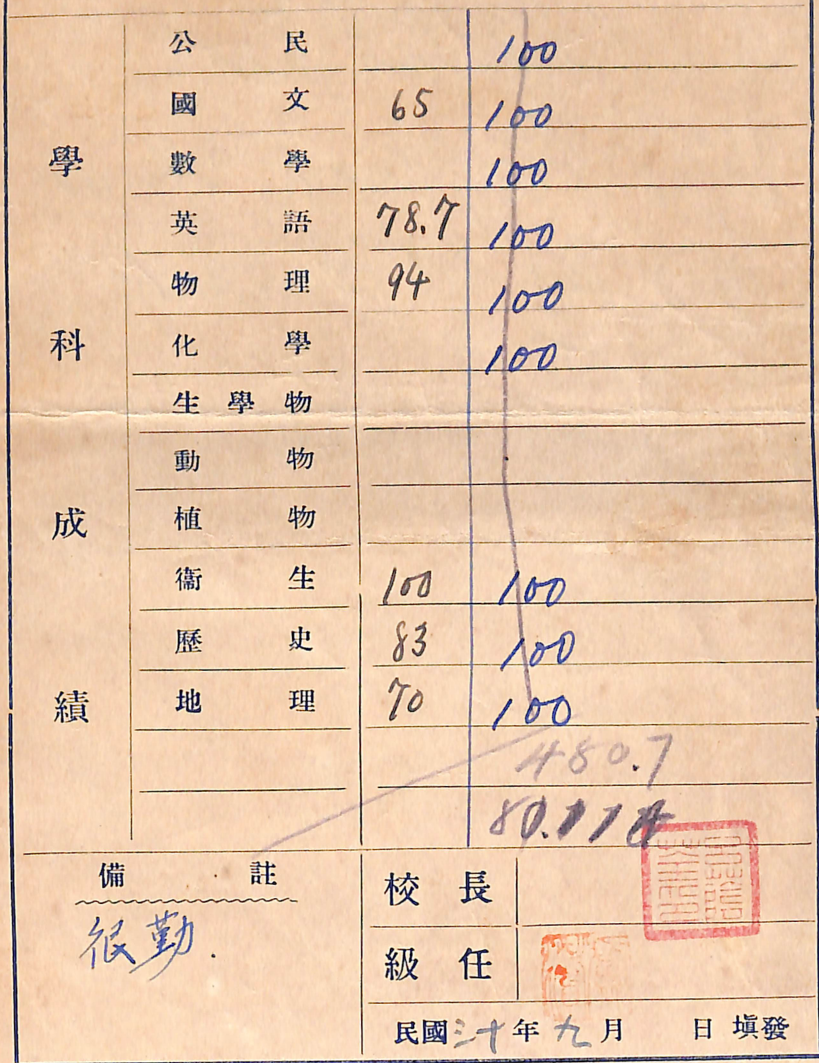 學科成績
公民 100
國文 65 100
數學 100
英語 78.7 100
物理 94 100
化學 100
生學物
動物
植物
衞生 100 100
歷史 83 100
地理 70 100
480.7
80.11
備註
很勤.
校長
級任
民國三十年九月 日填發